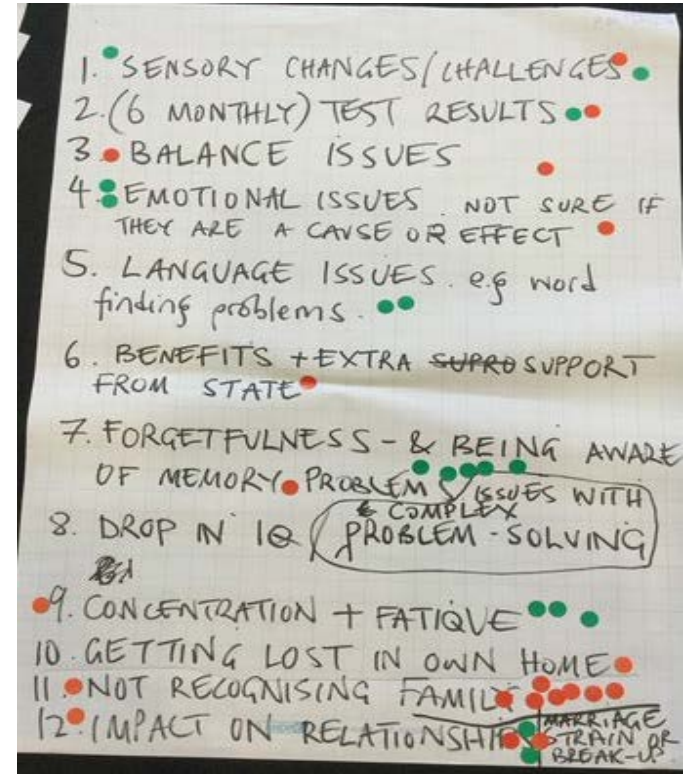 1. SENSORY CHANGES/CHALLENGES
2. (6 MONTHLY) TEST RESULTS
3. BALANCE ISSUES
4. EMOTIONAL ISSUES. NOT SURE IF
THEY ARE A CAUSE OR EFFECT
5. LANGUAGE ISSUES. e.g word
finding problems.
6. BENEFITS + EXTRA SUPRO SUPPORT
FROM STATE
7. FORGETFULNESS - & BEING AWARE
OF MEMORY PROBLEMS
ISSUES WITH
& COMPLEX
8. DROP IN IQ PROBLEM-SOLVING
9. CONCENTRATION + FATIQUE
10. GETTING LOST IN OWN HOME
11. NOT RECOGNISING FAMILY
12. IMPACT ON RELATIONSHIPS
MARRIAGE
STRAIN OR
BREAK-UP